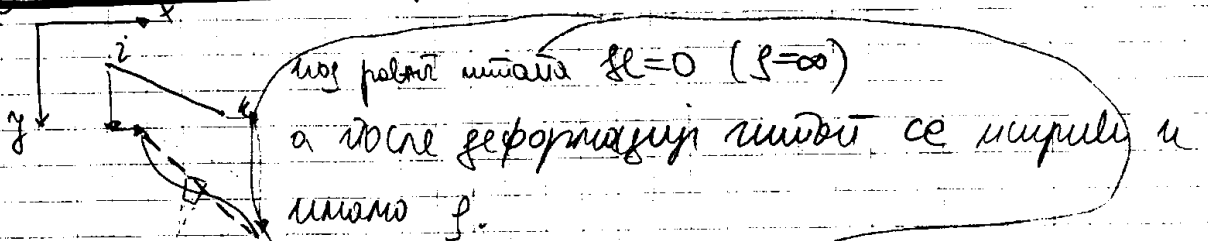 x
i
код равог штапа ϰ=0 (ρ=∞)
k
y
а после деформације штап се искриви и
имамо ρ.